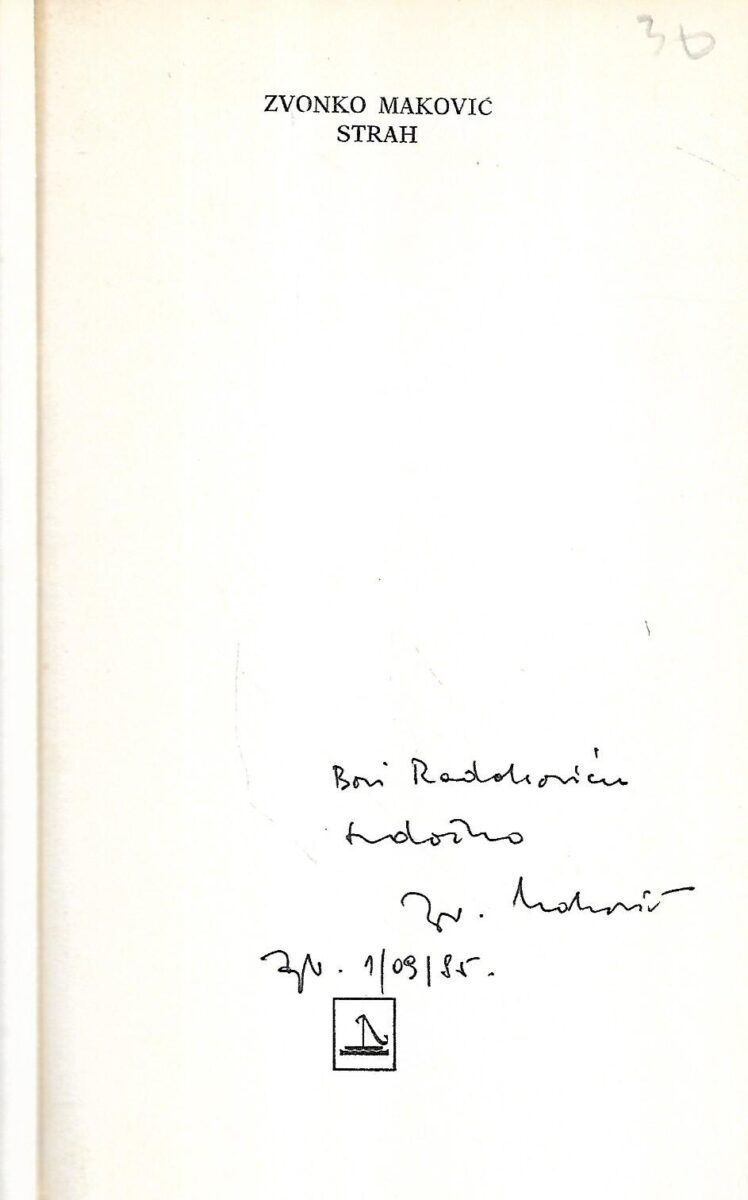 ZVONKO MAKOVIĆ
STRAH
Bori Radakoviću
srdačno
Zv. Maković
Zgb. 1/09/85.